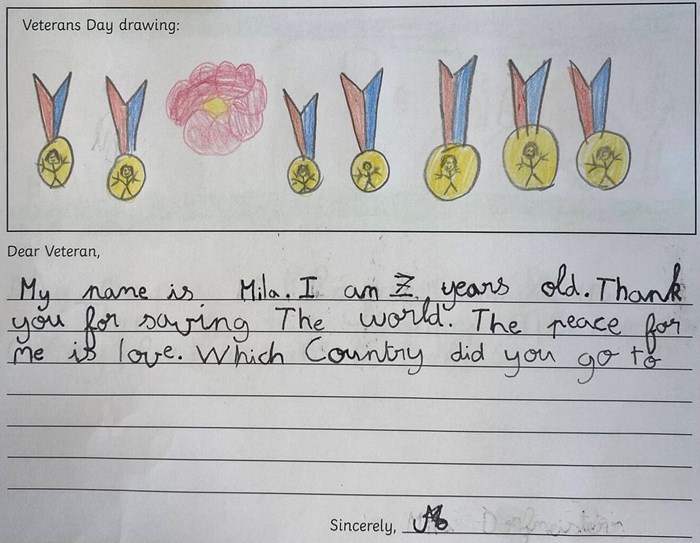 Veterans Day drawing:
Dear Veteran,
My name is Mila. I am 7 years old. Thank
you for saving The world. The peace for
me is love. Which Country did you go to
Sincerely,